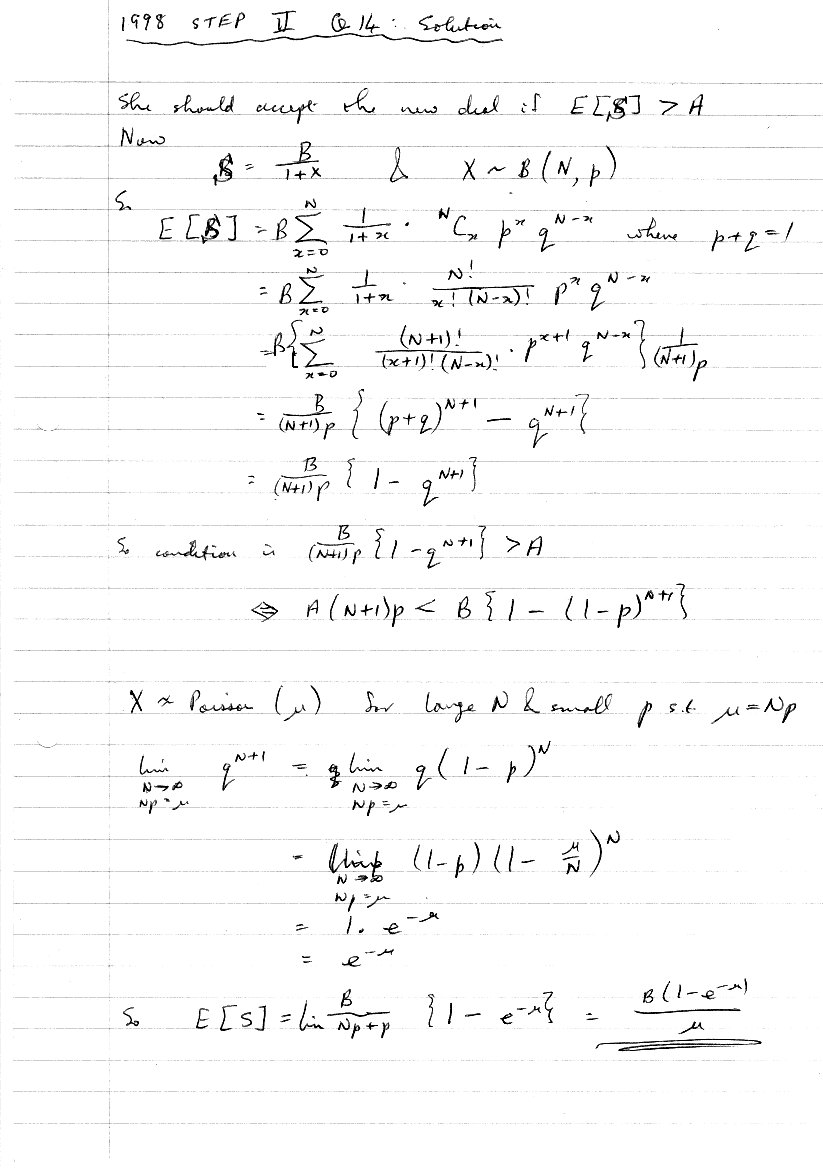 1998 STEP II Q14: Solution
She should accept the new deal if E[S] > A
Now
S = B/(1+X) & X ~ B(N, p)
So
E[S] = B ∑_{x=0}^{N} 1/(1+x) · ^N C_x p^x q^{N-x} where p+q=1
= B ∑_{x=0}^{N} 1/(1+x) · N!/(x!(N-x)!) p^x q^{N-x}
= B{∑_{x=0}^{N} (N+1)!/((x+1)!(N-x)!) · p^{x+1} q^{N-x}} 1/((N+1)p)
= B/((N+1)p) {(p+q)^{N+1} - q^{N+1}}
= B/((N+1)p) {1 - q^{N+1}}
So condition is B/((N+1)p) {1 - q^{N+1}} > A
⇔ A(N+1)p < B{1 - (1-p)^{N+1}}
X ≈ Poisson (μ) for large N & small p s.t. μ = Np
lim_{N→∞, Np=μ} q^{N+1} = lim_{N→∞, Np=μ} q(1-p)^N
= lim_{N→∞, Np=μ} (1-p)(1 - μ/N)^N
= 1. e^{-μ}
= e^{-μ}
So E[S] = lim B/(Np+p) {1 - e^{-μ}} = B(1-e^{-μ})/μ